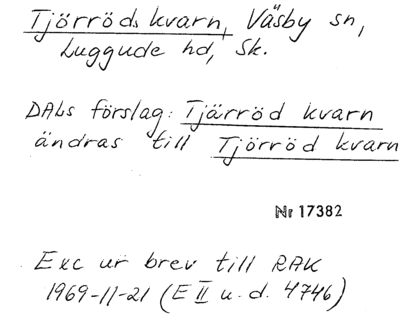 Tjörröds kvarn, Väsby sn,
Luggude hd, Sk.
DALs förslag: Tjärröd kvarn
ändras till Tjörröd kvarn
Nr 17382
Exc ur brev till RAK
1969-11-21 (E II u. d. 4746)